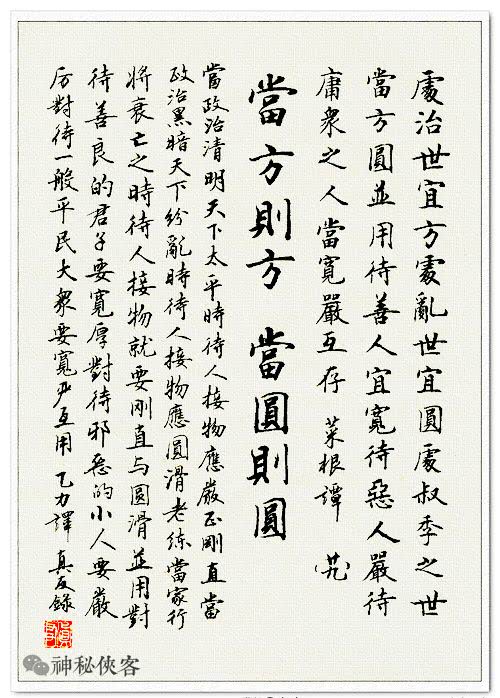 處治世宜方處亂世宜圓處叔季之世
當方圓並用待善人宜寬待惡人嚴待
庸衆之人當寬嚴互存 菜根譚
當方則方 當圓則圓
當政治清明天下太平時待人接物應嚴正剛直當
政治黑暗天下紛亂時待人接物應圓滑老練當家行
將衰亡之時待人接物就要剛直与圓滑並用對
待善良的君子要寬厚對待邪惡的小人要嚴
厉對待一般平民大衆要寬严互用 乙力譯 真友錄
神秘俠客